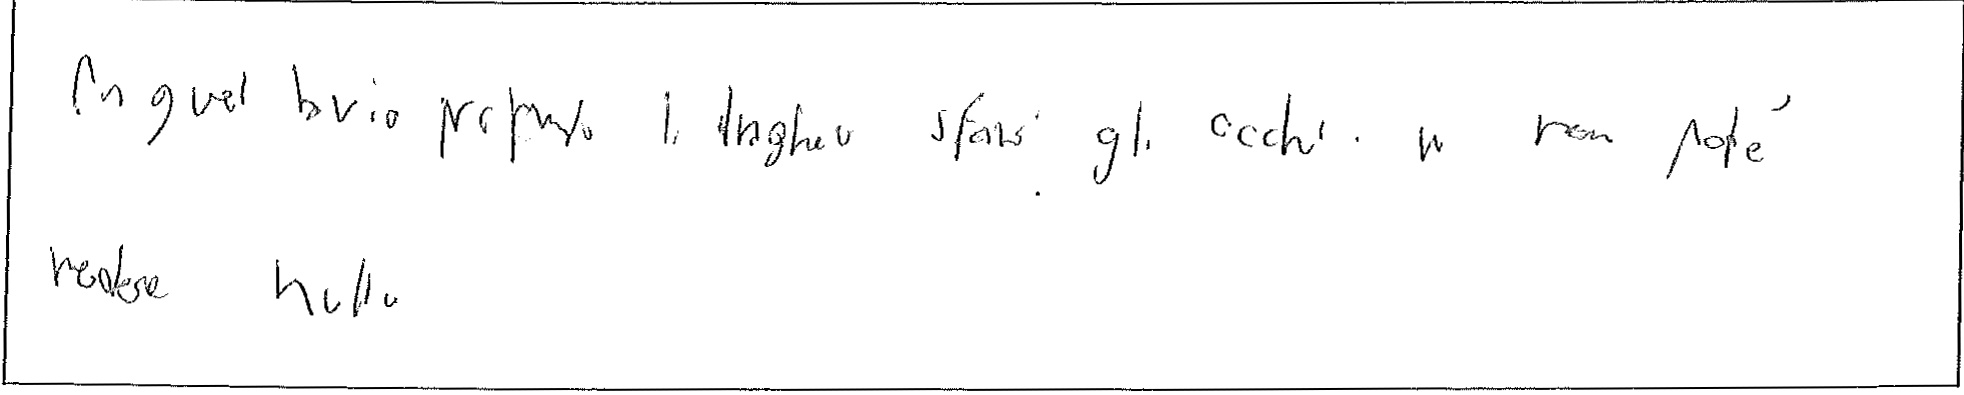 In quel buio profondo li stnghev sfarsi gli occhi. w non poté
vedere nulla